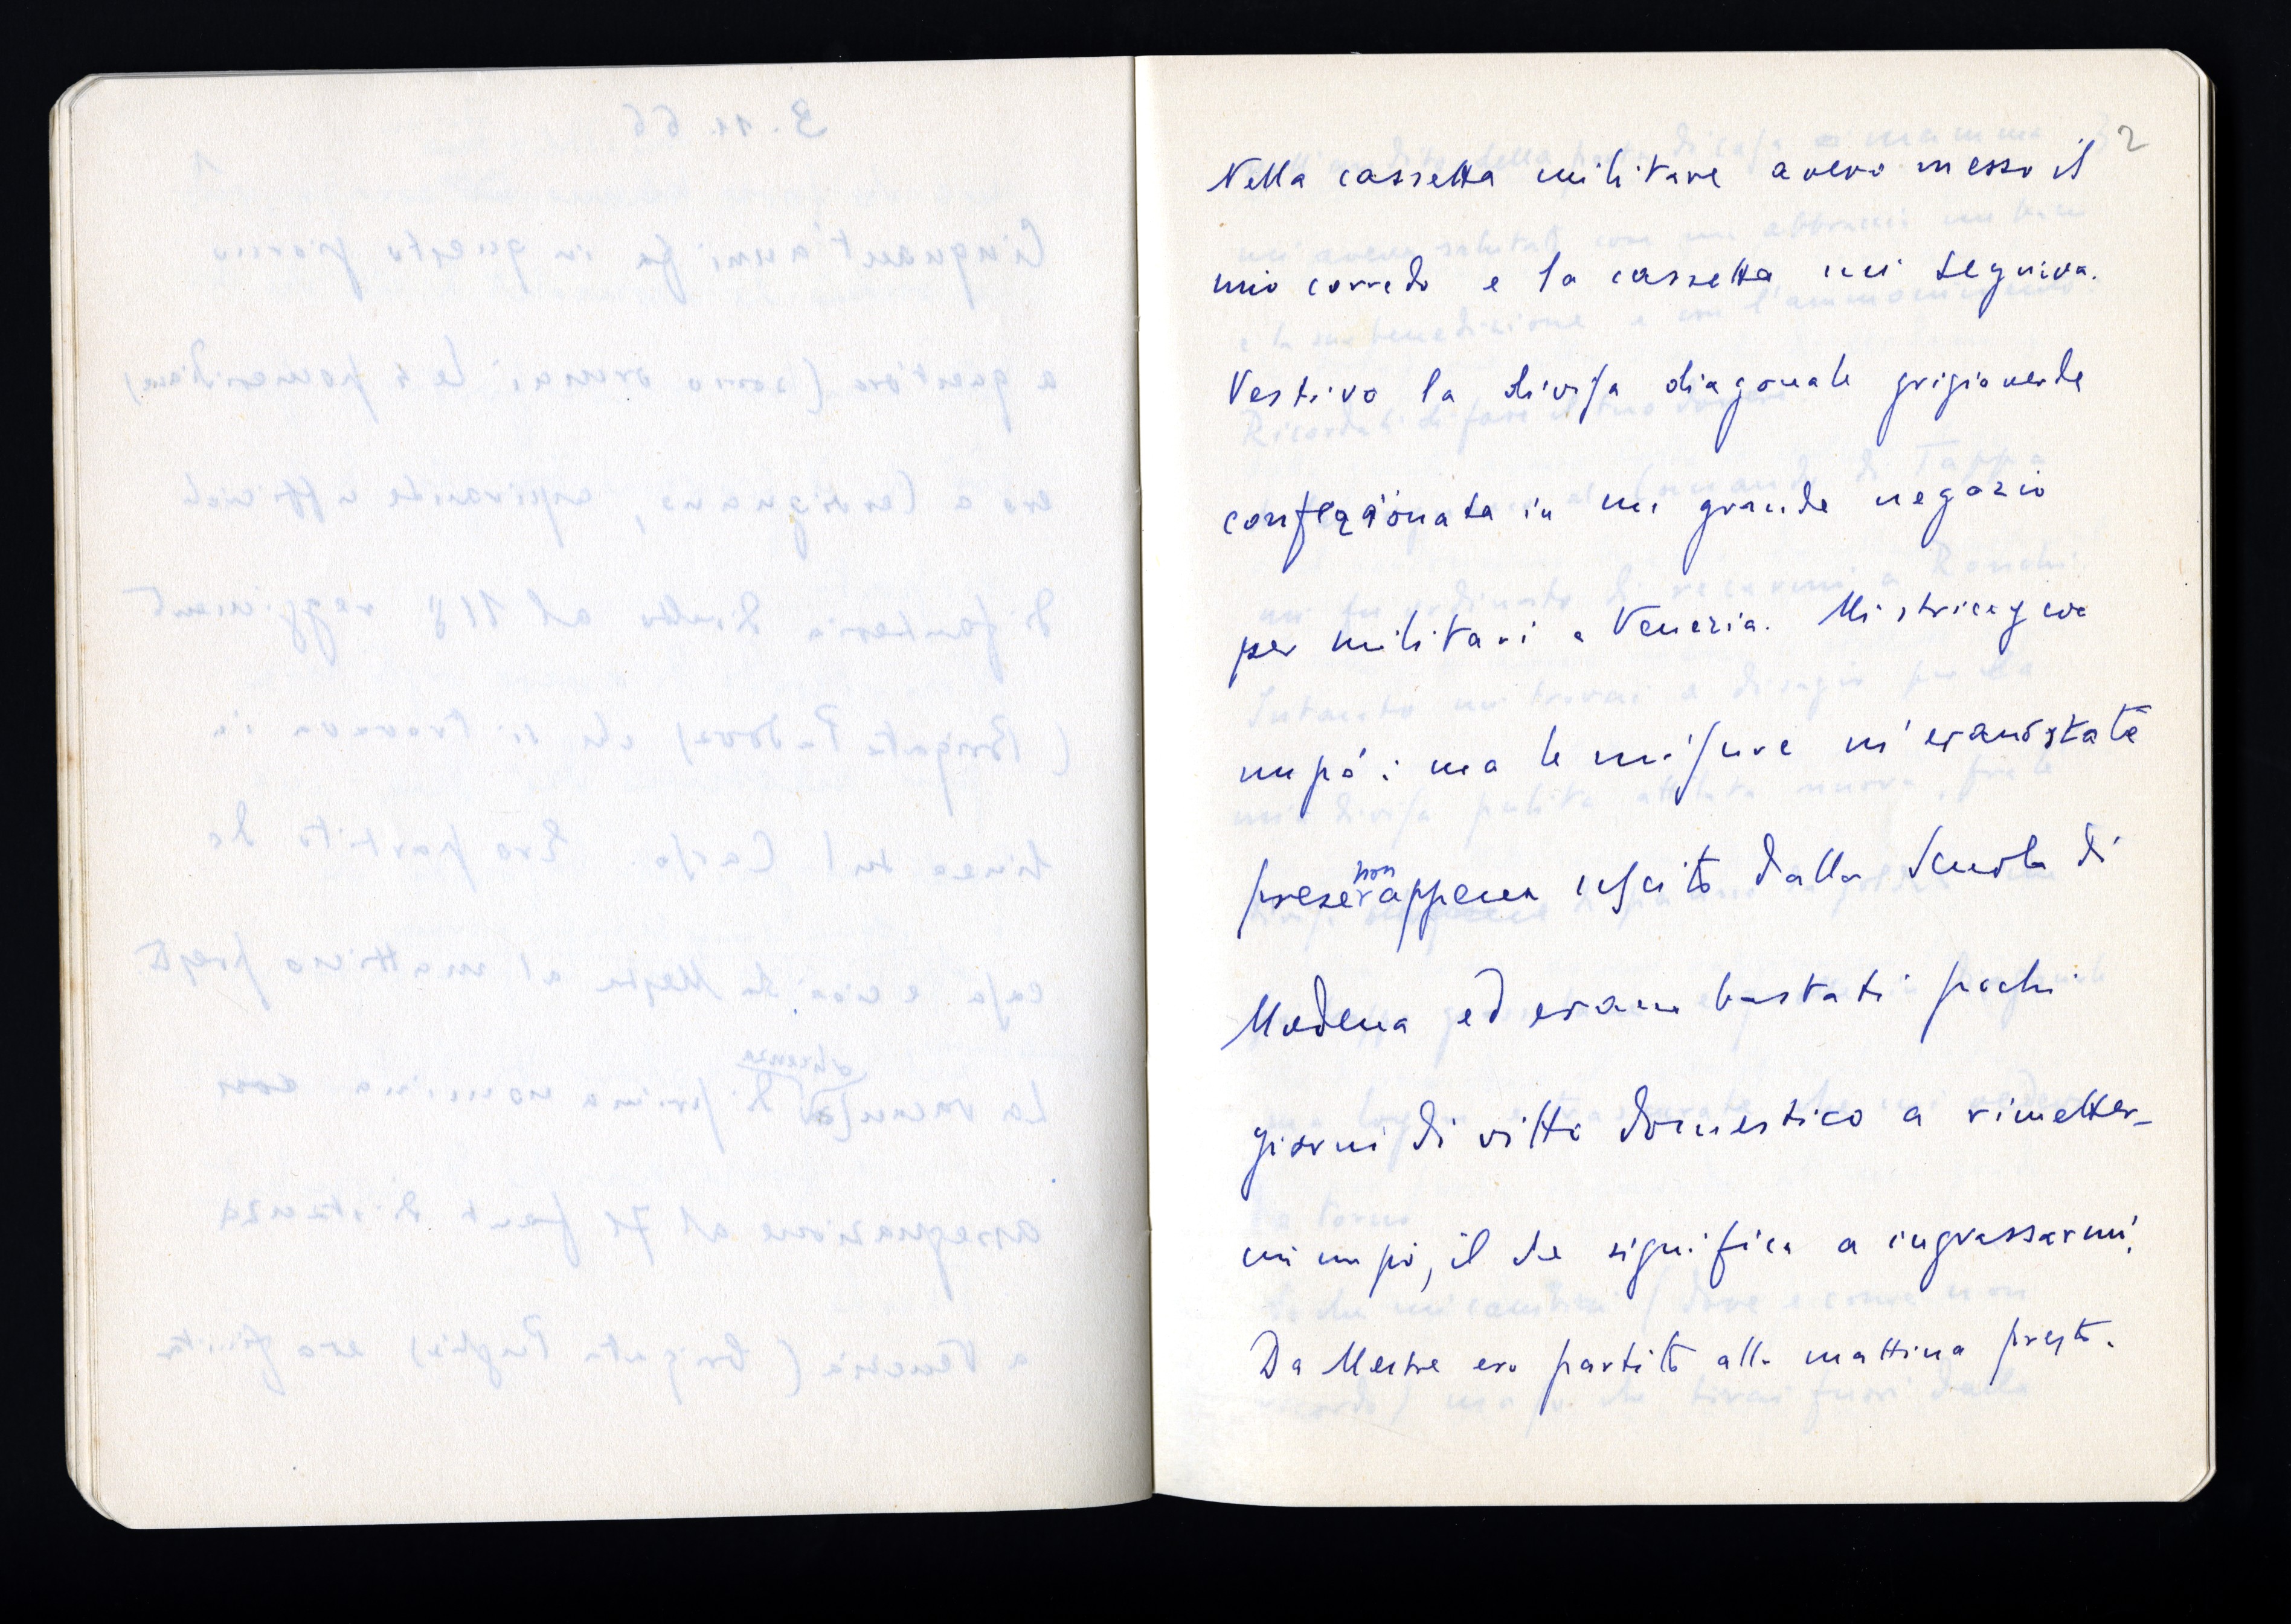 2
Nella cassetta militare avevo messo il
mio corredo e la cassetta mi seguiva.
Vestivo la divisa diagonale grigioverde
confezionata in un grande negozio
per militari a Venezia. Mi stringeva
un pò: ma le misure m'erano state
prese non appena uscito dalla Scuola di
Modena ed erano bastati pochi
giorni di vitto domestico a rimetter-
mi un pò, il che significa a ingrassarmi.
Da Mestre ero partito alla mattina presto.